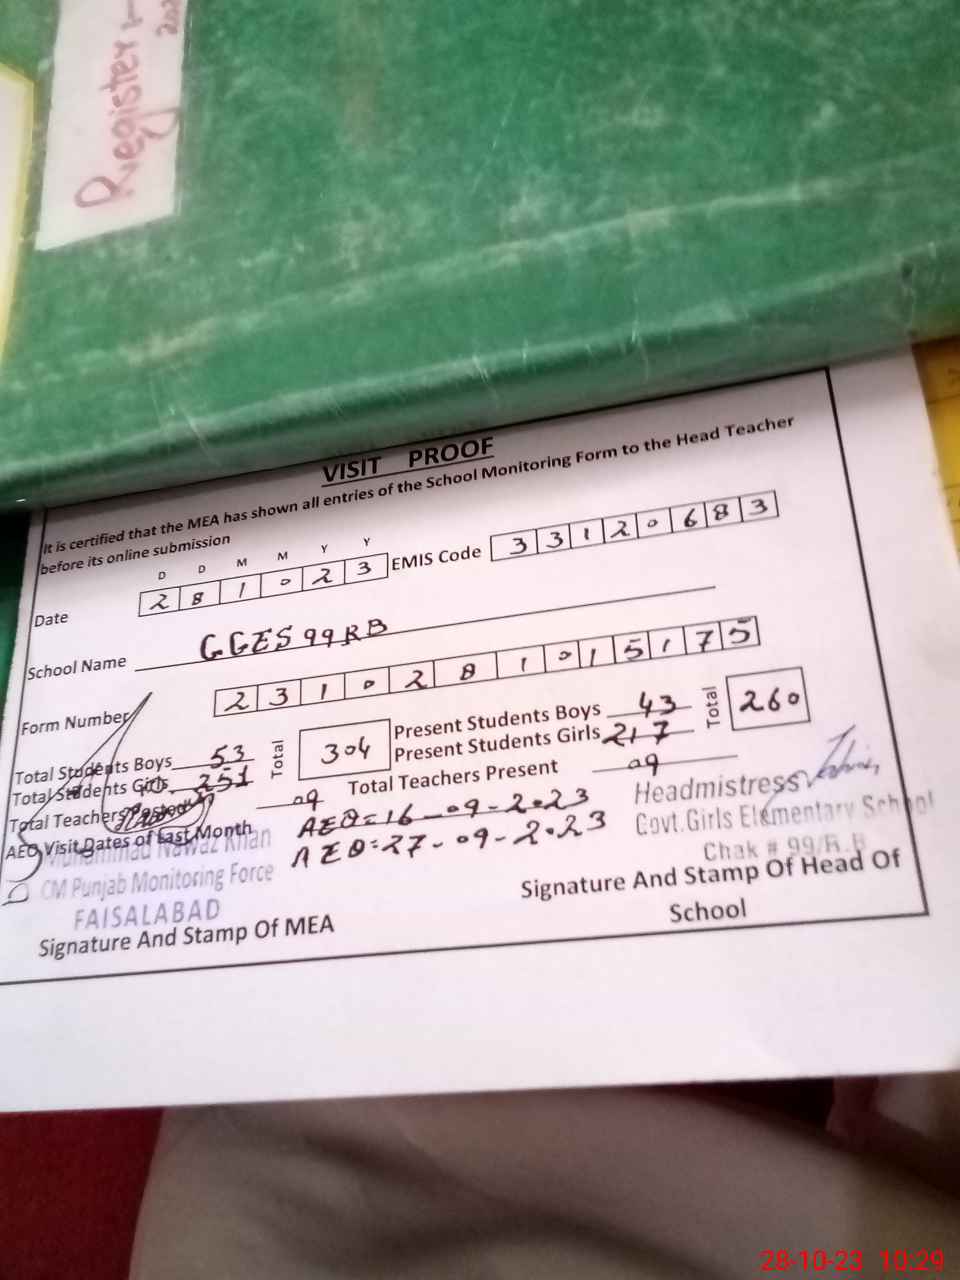 Register
VISIT PROOF
It is certified that the MEA has shown all entries of the School Monitoring Form to the Head Teacher
before its online submission
D D M M Y Y
Date 2 8 1 0 2 3 EMIS Code 3 3 1 2 0 6 8 3
School Name GGES 99RB
Form Number 2 3 1 0 2 8 1 0 1 5 1 7 5
Total Students Boys 53 Total 304 Present Students Boys 43 Total 260
Total Students Girls 251 Present Students Girls 217
Total Teachers Posted 09 Total Teachers Present 09
AEO Visit Dates of Last Month AEO=16-09-2023
AEO:27-09-2023
Muhammad Nawaz Khan
CM Punjab Monitoring Force
FAISALABAD
Signature And Stamp Of MEA
Headmistress
Govt.Girls Elementary School
Chak # 99/R.B
Signature And Stamp Of Head Of
School
28-10-23 10:29